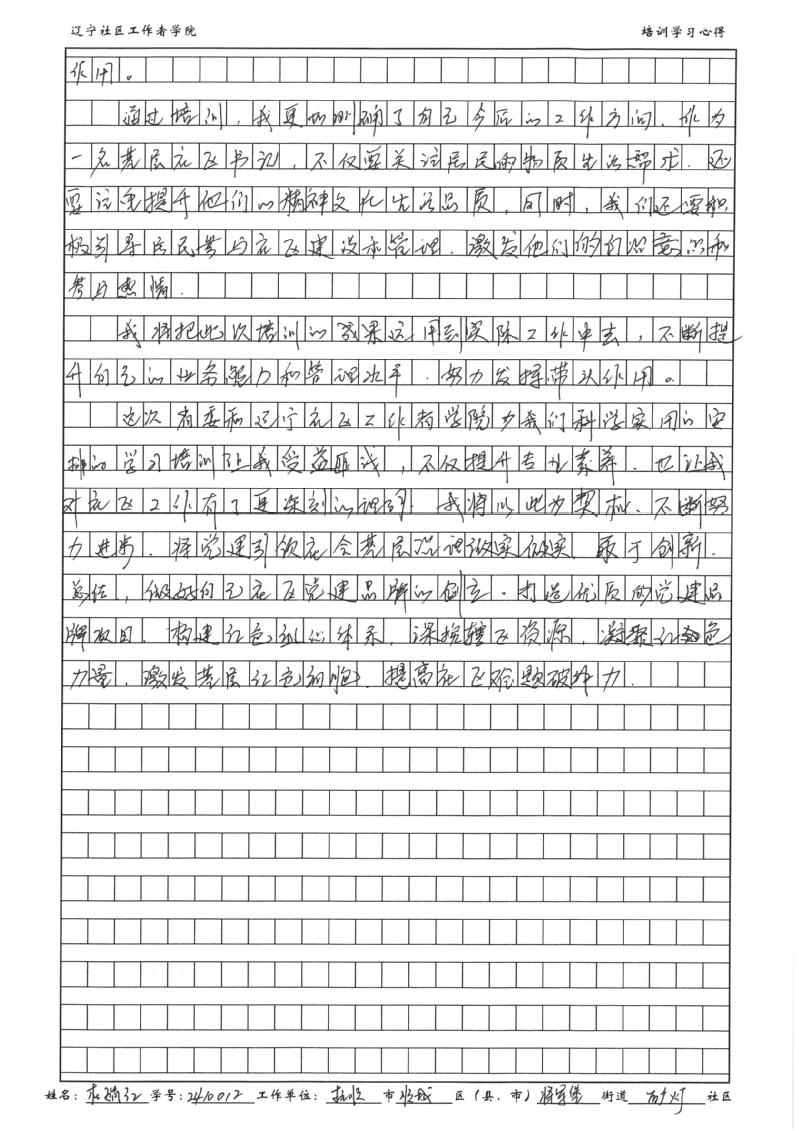 辽宁社区工作者学院 培训学习心得
作用。
通过培训，我更加明确了自己今后的工作方向，作为
一名基层社区书记，不仅要关注居民的物质生活需求，还
要注重提升他们的精神文化生活品质，同时，我们还要积
极引导居民参与社区建设和管理，激发他们的自治意识和
参与热情。
我将把此次培训的成果运用到实际工作中去，不断提
升自己的业务能力和管理水平，努力发挥带头作用。
这次省委和辽宁社区工作者学院为我们科学实用的安
排的学习培训让我受益匪浅，不仅提升专业素养，也让我
对社区工作有了更深刻的认识，我将以此为契机，不断努
力进步，将党建引领社会基层治理做实做实，敢于创新，
总结，做好自己社区党建品牌的创立，打造优质的党建品
牌项目，构建红色核心体系，深挖辖区资源，凝聚红色
力量，激发基层红色细胞，提高社区难题破解力。
姓名： 学号：2410012 工作单位：抚顺 市 顺城 区（县、市）将军堡 街道 社区